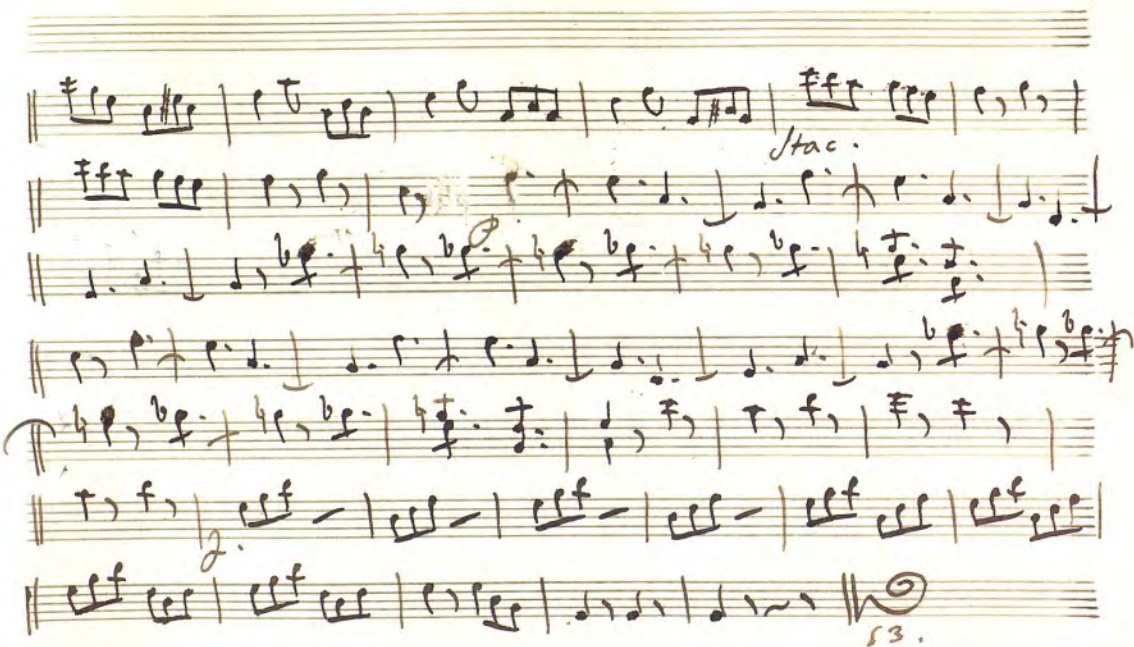 Stac.
P
2.
53.